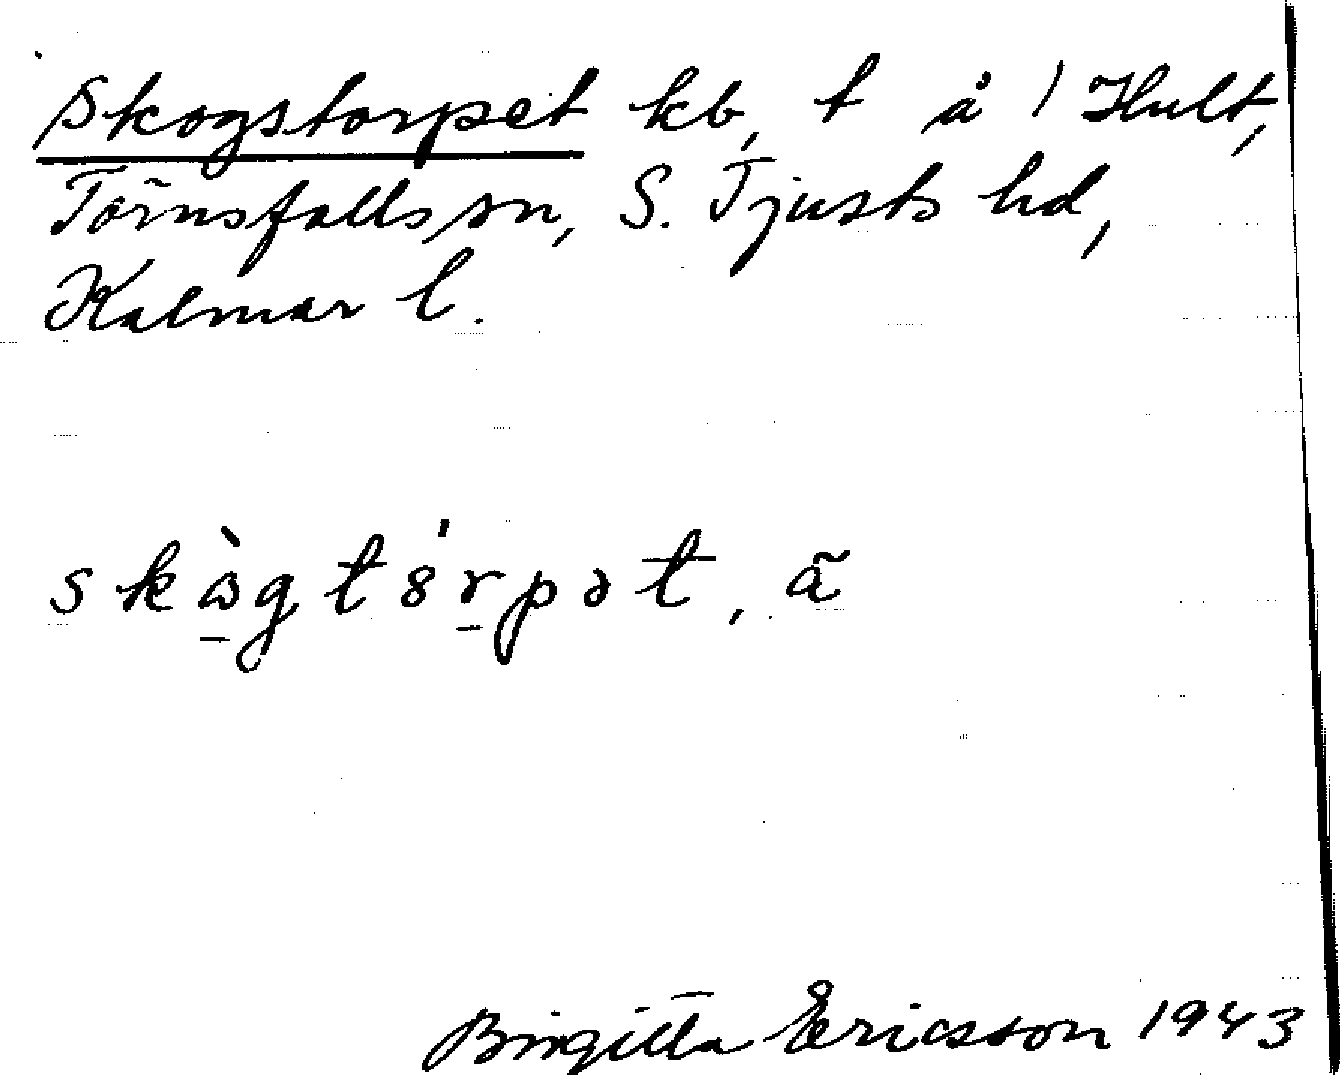 Skogstorpet kb, t å 1 Hult,
Törnsfalls sn, S. Tjusts hd,
Kalmar l.
skògtórpət, ã
Birgitta Ericsson 1943